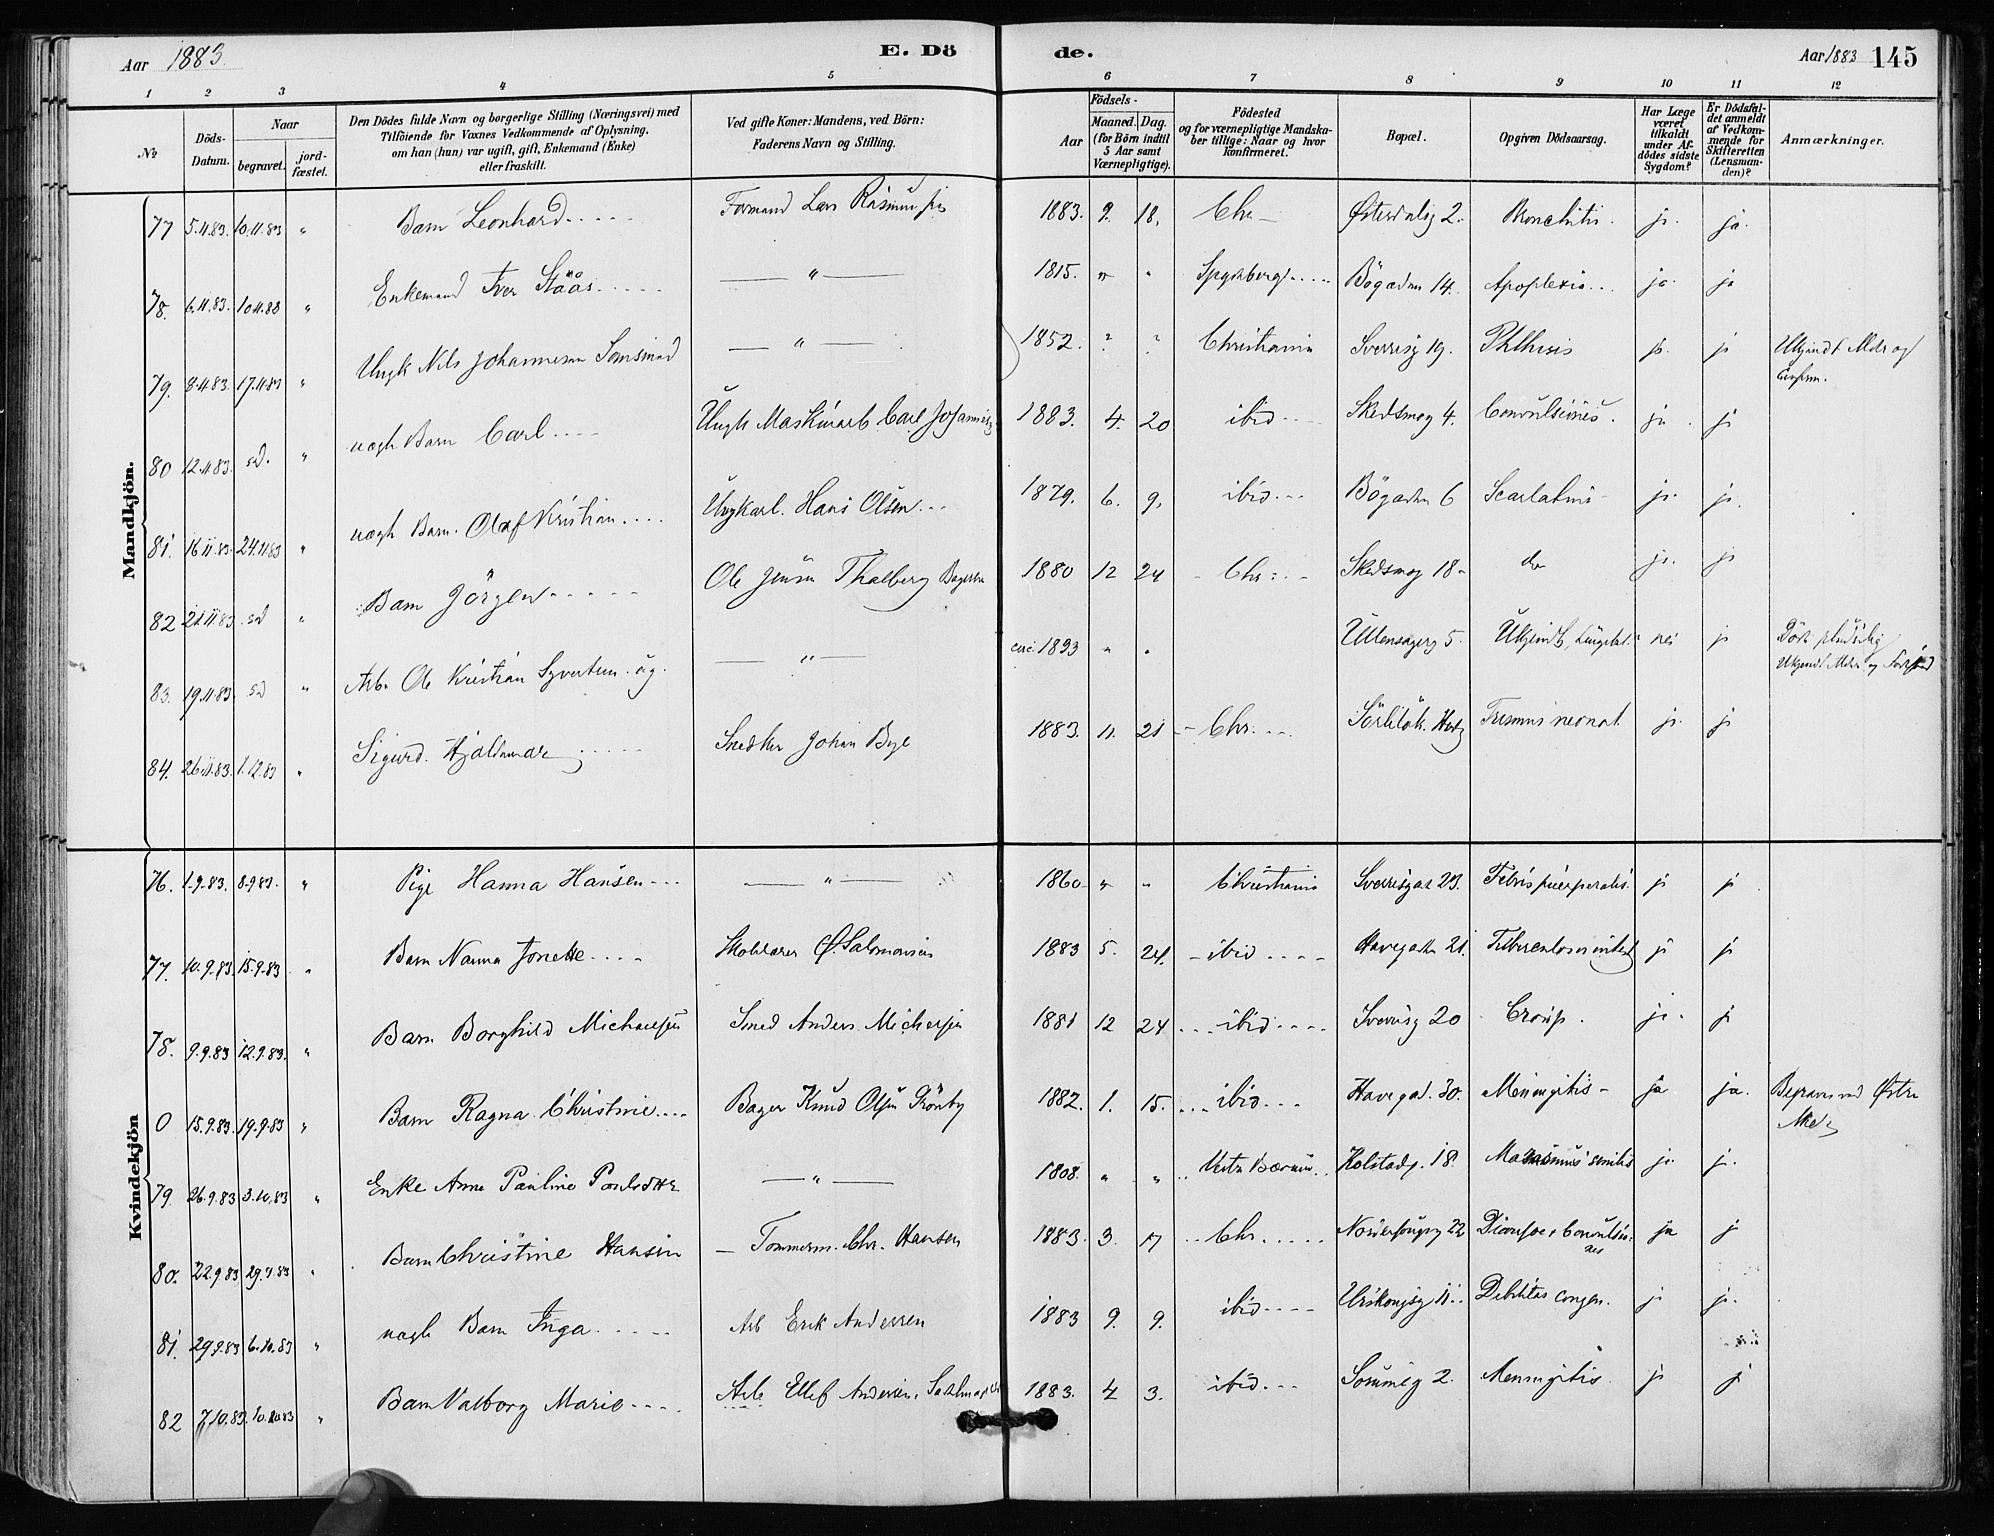 Aar 1883.
E. Dö
de.
Aar 1883 145
1 2 3 4 5 6 7 8 9 10 11 12
No
Döds-Datum.
Naar
begravet.
jord-fæstet.
Den Dödes fulde Navn og borgerlige Stilling (Næringsvei) med
Tilföiende for Voxnes Vedkommende af Oplysning,
om han (hun) var ugift, gift, Enkemand (Enke)
eller fraskilt.
Ved gifte Koner: Mandens, ved Börn:
Faderens Navn og Stilling.
Födsels-
Aar
Maaned. Dag.
(for Börn indtil
5 Aar samt
Værnepligtige).
Födested
og for værnepligtige Mandska-
ber tillige: Naar og hvor
konfirmeret.
Bopæl.
Opgiven Dödsaarsag.
Har Læge
været
tilkaldt
under Af-
dödes sidste
Sygdom?
Er Dödsfal-
det anmeldt
af Vedkom-
mende for
Skifteretten
(Lensman-
den)?
Anmærkninger.
Mandkjön.
77 5.11.83. 10.11.83 " Barn Leonhard Formand Lars 1883. 9. 18. Chr Østerdalsg 2. Bronchitis. ja. ja.
78. 6.11.83. 10.11.83 " Enkemand Iver Stäås " 1815. " " Bögaden 14. Apoplexia ja ja
79. 8.11.83. 17.11.83 " Ungk Nils Johannesen " 1852. ? ? Christiania Sverrisg 19. Phthisis ja. ja
80 12.11.83. sd. " uægte Barn Carl Ungk Maskinarb Carl 1883. 4. 20 ibid Skedsmog 4. Convulsiones. ja. ja
81. 16.11.83. 24.11.83 " uægte Barn. Olaf Kristian Ungkarl. Hans Olsen 1879. 6. 9. ibid Bögaden 6 Scarlatina ja. ja.
82 21.11.83. sd " Barn Jörgen Ole Jensen Thalberg 1880 12 24 Chr. Skedsmog 18 do ja. ja
83. 19.11.83. sd " Arb. Ole Kristian Syvertsen. ug. " circ. 1833 " " Ullensagerg 5. nei ja
84. 26.11.83. 1.12.83 " Sigurd. Hjaldmar Snedker Johan Bye 1883. 11. 21 Chr. Trismus neonat. ja. ja
Kvindekjön
76. 1.9.83. 8.9.83. " Pige Hanna Hansen " 1860 " " Christiania Sverrisgad 23. Febris puerperalis. ja ja
77. 10.9.83. 15.9.83 " Barn Nanna Jonette 1883 5. 24. ibid Havegaden 21. ja ja
78. 9.9.83 12.9.83. " Barn Borghild Smed Anders 1881 12 24 ibid Sverrisg 20 Croup. ja. ja
0 15.9.83. 19.9.83 " Barn Ragna Christine Bager Knud Olsen 1882. 1. 15. ibid Havegad. 30. Meningitis ja ja. Begraves ved Østre
Aker
79. 26.9.83 3.10.83 " Enke Anne Pauline " 1808. " " Vestre Bærum Kolstadg. 18. Marasmus senilis ja. ja.
80. 22.9.83 29.9.83 " Barn Christine Hansen Tømmerm. Chr. Hansen 1883. 3. 17 Chr. 22 ja ja
81. 29.9.83 6.10.83 " uægte Barn Inga Arb Erik Andersen 1883 9. 9. ibid Urskougsg 11. Debilitas congen. ja ja.
82 7.10.83. 10.10.83 " Barn Valborg Marie Arb Ellef Andersen 1883. 4 3. ibid 2. Meningitis. ja ja